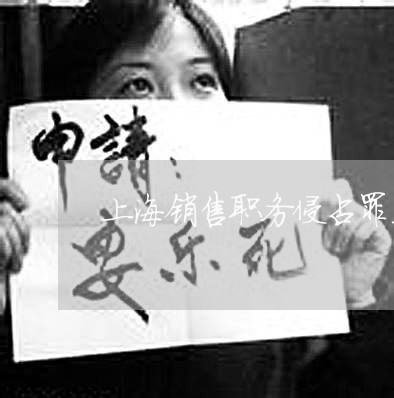 申請：
上海销售职务侵占罪
安乐死